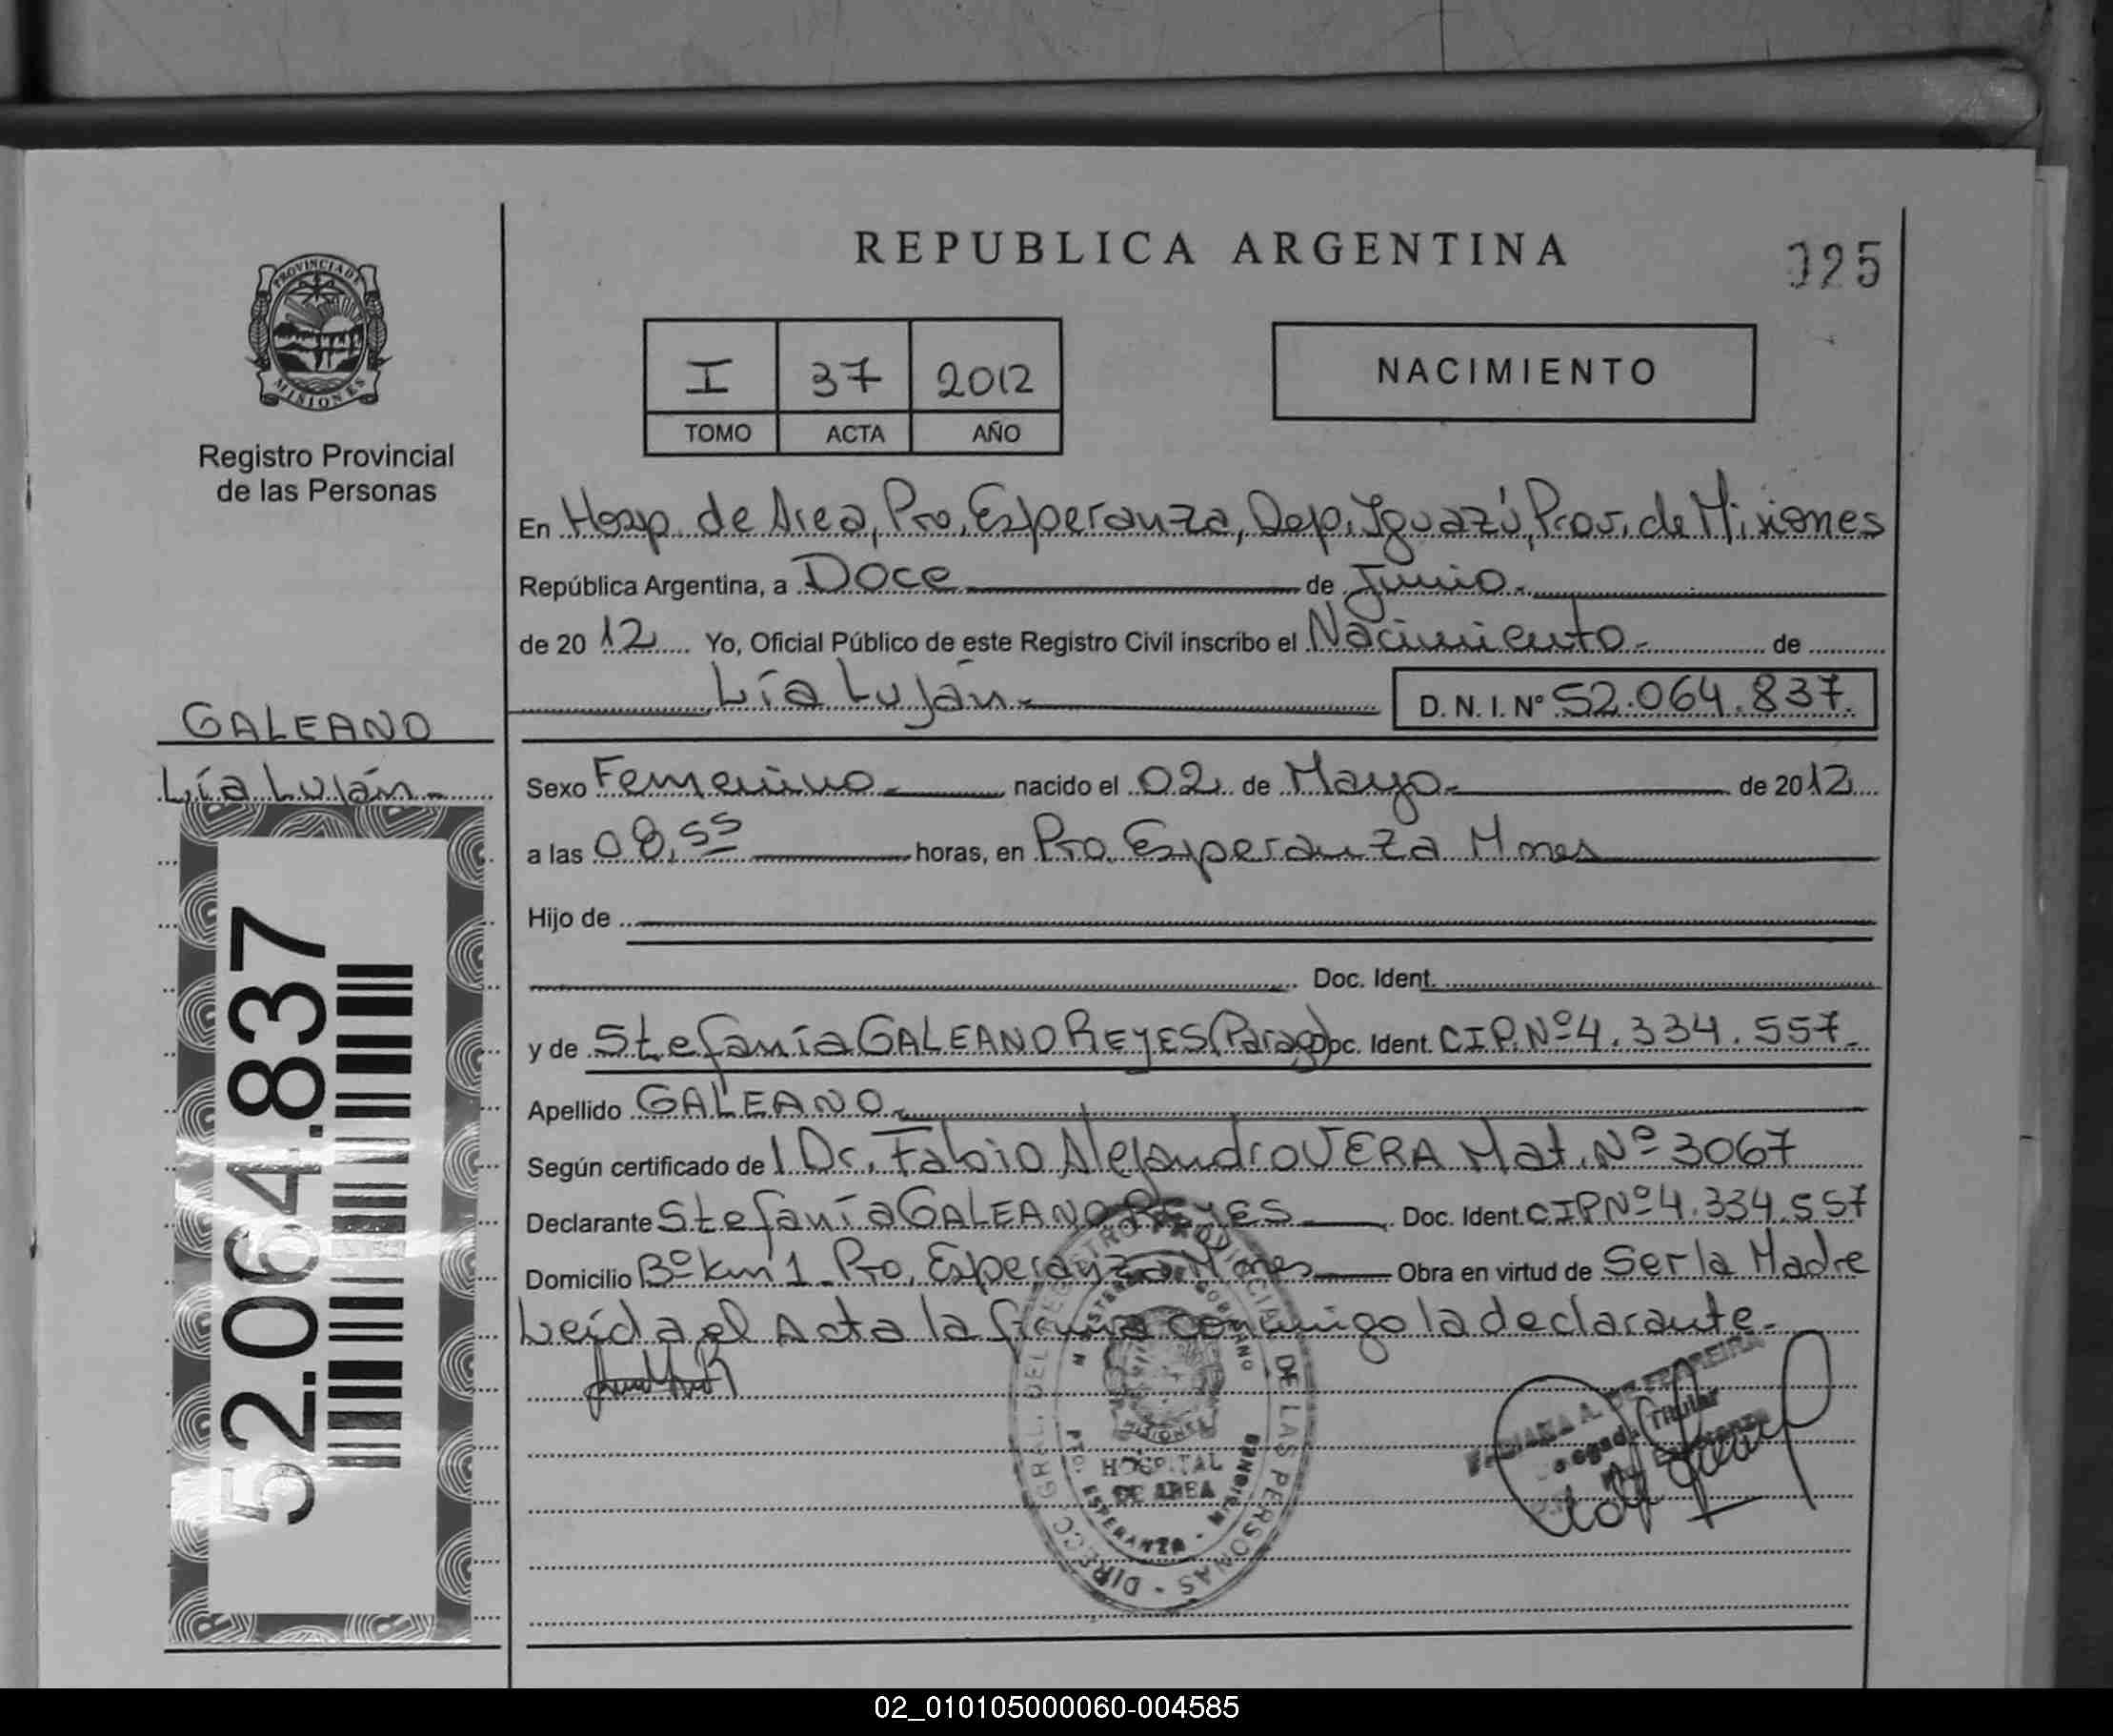 REPUBLICA ARGENTINA
025
PROVINCIA DE
MISIONES
Registro Provincial
de las Personas
I 37 2012
TOMO ACTA AÑO
NACIMIENTO
En Hosp. de Area, Pto. Esperanza, Dep. Iguazú, Prov. de Misiones
República Argentina, a Doce de Junio.
de 20 12 Yo, Oficial Público de este Registro Civil inscribo el Nacimiento. de
Lía Luján. D. N. I. Nº 52.064.837.
GALEANO
Lía Luján.
Sexo Femenino. nacido el 02 de Mayo. de 2012
a las 08,55 horas, en Pto. Esperanza Mnes
Hijo de
Doc. Ident.
y de Stefanía GALEANO REYES (Parag) Doc. Ident. CIP. Nº 4.334.557.
Apellido GALEANO.
Según certificado de l Dr. Fabio Alejandro VERA Mat. Nº 3067
Declarante Stefanía GALEANO REYES Doc. Ident. CIP Nº 4.334.557
Domicilio Bº km 1 Pto. Esperanza Mnes Obra en virtud de Ser la Madre
Leída el Acta la firma conmigo la declarante.
52.064.837
DIRECC. GRAL. DEL REGISTRO PROVINCIAL DE LAS PERSONAS
MINISTERIO DE GOBIERNO
MISIONES
HOSPITAL
DE AREA
PTO. ESPERANZA - MISIONES
A. DE FERREIRA
Delegada Titular
Pto. Esperanza
02_010105000060-004585